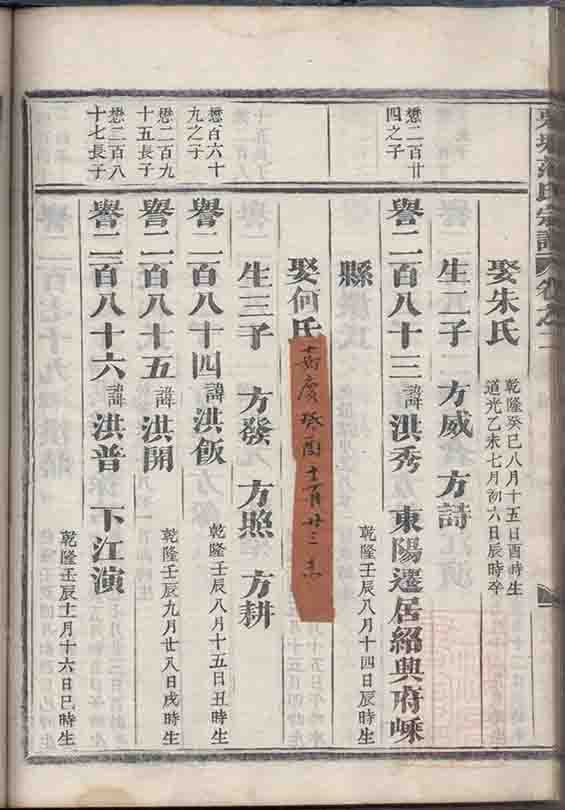 氏宗譜 卷之二
娶朱氏 乾隆癸巳八月十五日酉時生 道光乙未七月初六日辰時卒
生二子 方威 方詩
懋二百廿四之子
譽二百八十三 諱洪秀 東陽遷居紹興府嵊
縣 乾隆壬辰八月十四日辰時生
娶何氏
慶癸酉 月廿三
生三子 方發 方照 方耕
懋百六十九之子
譽二百八十四 諱洪飯 乾隆壬辰八月十五日丑時生
懋二百九十五長子
譽二百八十五 諱洪開 乾隆壬辰九月廿八日戌時生
懋二百八十七長子
譽二百八十六 諱洪普 下江演 乾隆壬辰十一月十六日巳時生